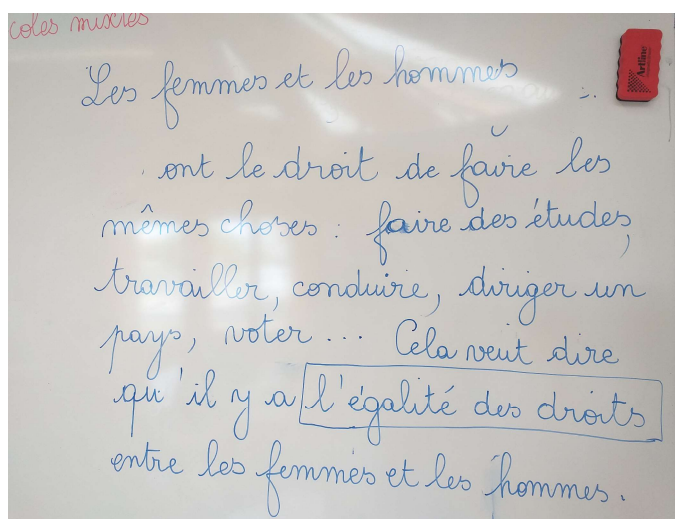 coles mixtes
Les femmes et les hommes
Artline
ont le droit de faire les
mêmes choses : faire des études,
travailler, conduire, diriger un
pays, voter ... Cela veut dire
qu'il y a l'égalité des droits
entre les femmes et les hommes.